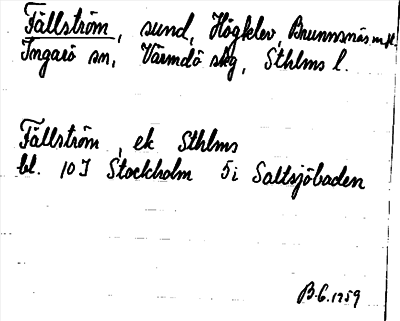 Fällström, sund, Högklev, Brunnsnäs m.fl.
Ingarö sn, Värmdö skg, Sthlms l.
Fällström, ek Sthlms
bl. 10 I Stockholm 5 i Saltsjöbaden
B.G. 1959